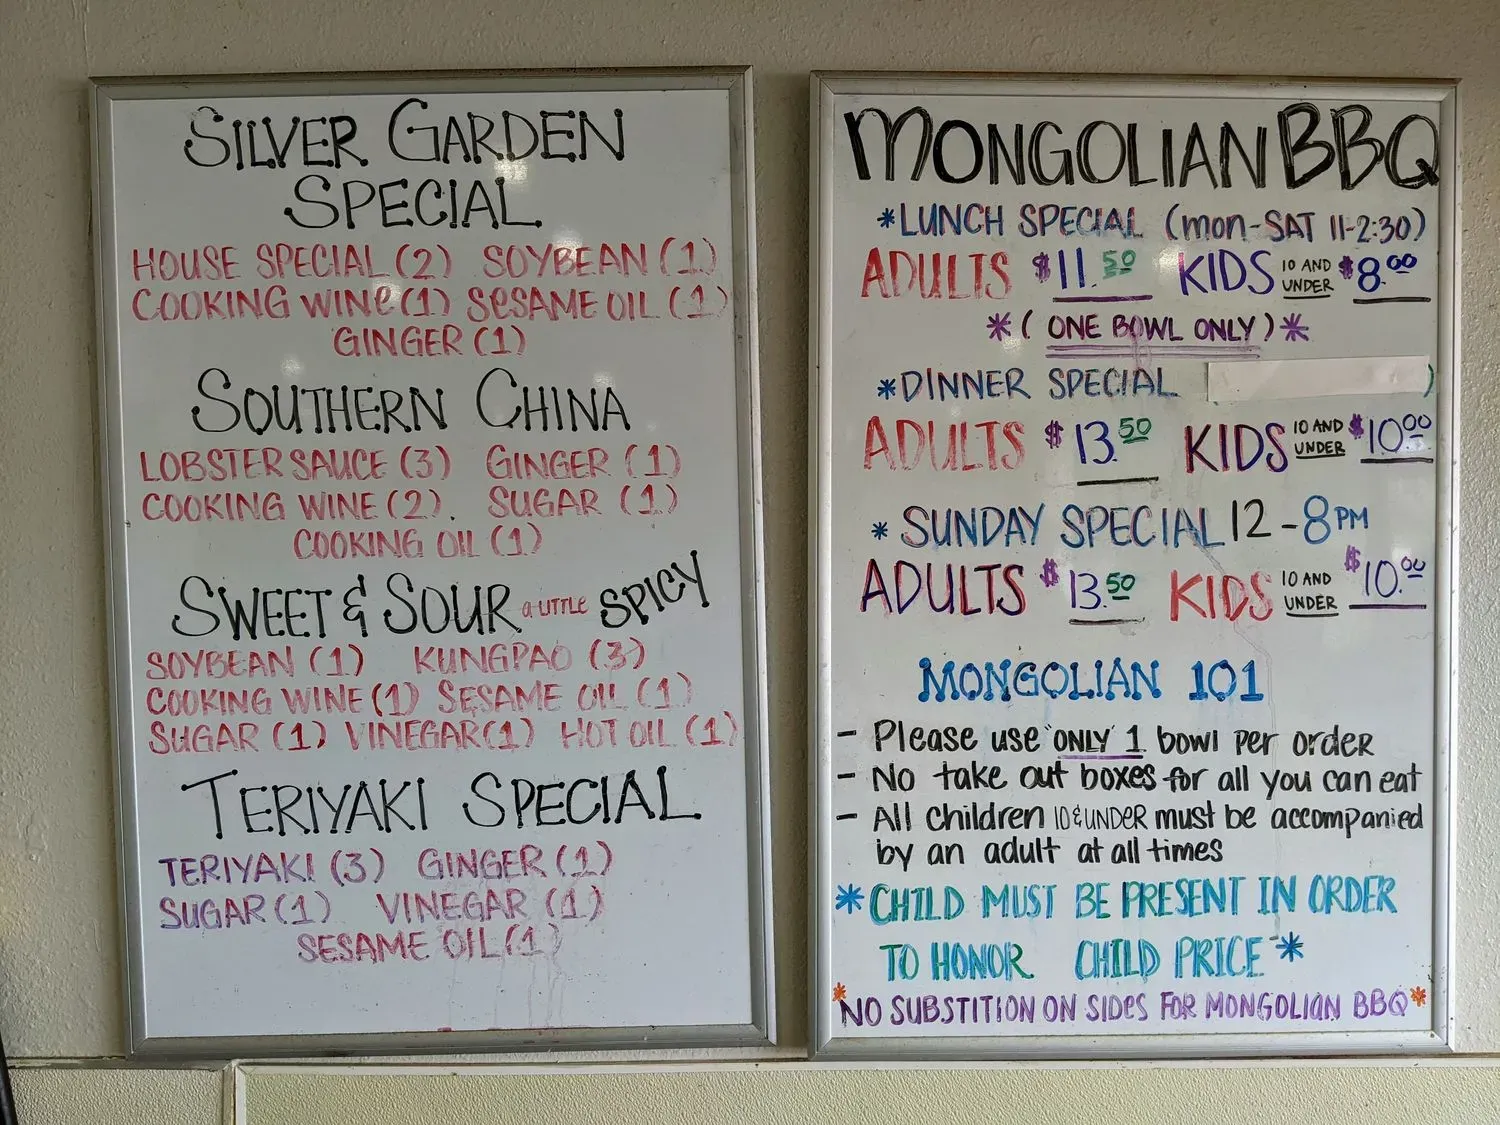 SILVER GARDEN
SPECIAL
HOUSE SPECIAL (2) SOYBEAN (1)
COOKING WINE (1) SESAME OIL (1)
GINGER (1)
SOUTHERN CHINA
LOBSTER SAUCE (3) GINGER (1)
COOKING WINE (2). SUGAR (1)
COOKING OIL (1)
SWEET & SOUR a LITTLE SPICY
SOYBEAN (1) KUNGPAO (3)
COOKING WINE (1) SESAME OIL (1)
SUGAR (1) VINEGAR (1) HOT OIL (1)
TERIYAKI SPECIAL
TERIYAKI (3) GINGER (1)
SUGAR (1) VINEGAR (1)
SESAME OIL (1)
MONGOLIAN BBQ
*LUNCH SPECIAL (mon-SAT 11-2:30)
ADULTS $11.50 KIDS 10 AND UNDER $8.00
*( ONE BOWL ONLY )*
*DINNER SPECIAL )
ADULTS $13.50 KIDS 10 AND UNDER $10.00
* SUNDAY SPECIAL 12-8PM
ADULTS $13.50 KIDS 10 AND UNDER $10.00
MONGOLIAN 101
- Please use "ONLY" 1 bowl per order
- No take out boxes for all you can eat
- All children 10 & UNDER must be accompanied
by an adult at all times
*CHILD MUST BE PRESENT IN ORDER
TO HONOR CHILD PRICE*
*NO SUBSTITION ON SIDES FOR MONGOLIAN BBQ*